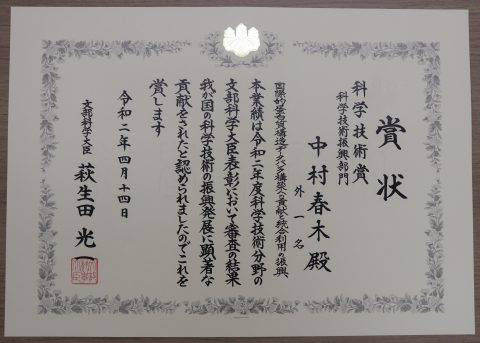 賞状
科学技術賞
科学技術振興部門
中村春木殿
外一名
国際的蛋白質構造データバンク構築への貢献と統合利用の振興
本業績は令和二年度科学技術分野の
文部科学大臣表彰において審査の結果
我が国の科学技術の振興発展に顕著な
貢献をされたと認められましたのでこれを
賞します
令和二年四月十四日
文部科学大臣 萩生田光一